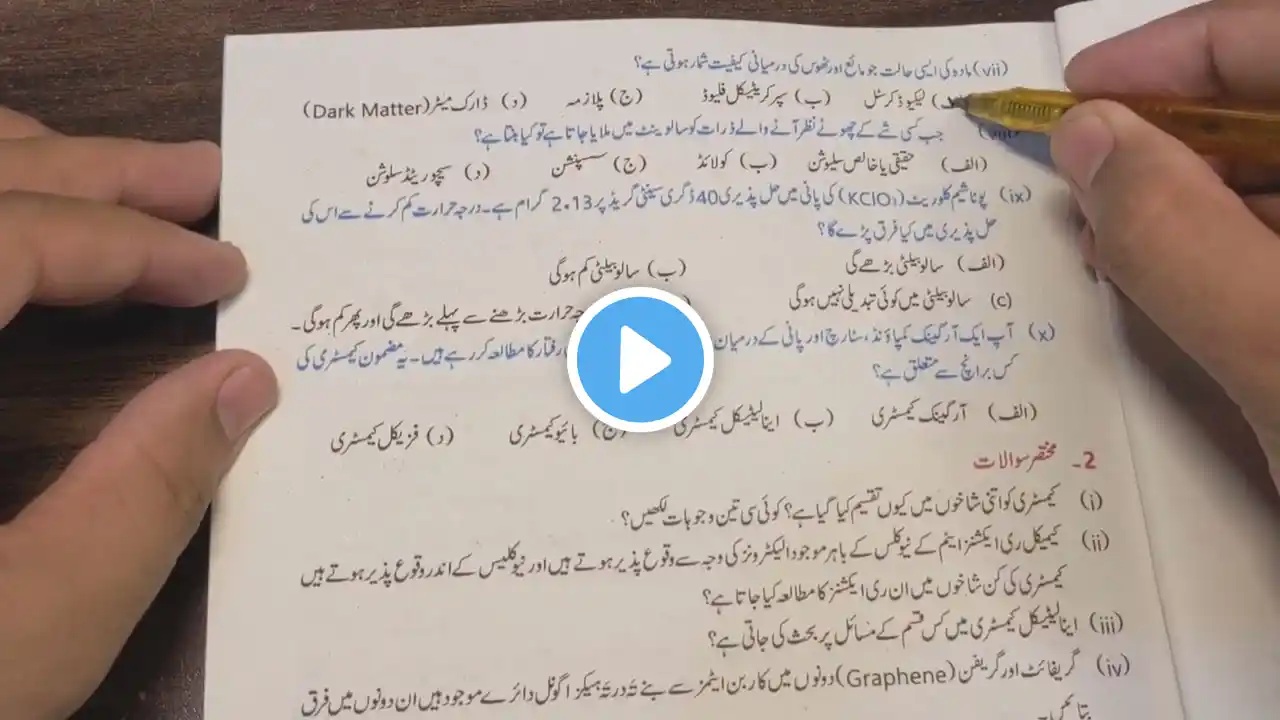 (vii) مادہ کی ایسی حالت جو مائع اور ٹھوس کی درمیانی کیفیت شمار ہوتی ہے؟
لیکیوڈ کرسٹل (ب) سپر کریٹیکل فلیوڈ (ج) پلازمہ (د) ڈارک میٹر (Dark Matter)
جب کسی شے کے چھوٹے نظر آنے والے ذرات کو سالوینٹ میں ملایا جاتا ہے تو کیا بنتا ہے؟
(الف) حقیقی یا خالص سلیوشن (ب) کولائڈ (ج) سسپنشن (د) سیچوریٹڈ سلوشن
(ix) پوٹاشیم کلوریٹ (KClO₃) کی پانی میں حل پذیری 40 ڈگری سینٹی گریڈ پر 2.13 گرام ہے۔ درجہ حرارت کم کرنے سے اس کی
حل پذیری میں کیا فرق پڑے گا؟
(الف) سالوبیلٹی بڑھے گی (ب) سالوبیلٹی کم ہوگی
(c) سالوبیلٹی میں کوئی تبدیلی نہیں ہوگی حرارت بڑھنے سے پہلے بڑھے گی اور پھر کم ہوگی۔
(x) آپ ایک آرگینک کمپاؤنڈ، سٹارچ اور پانی کے درمیان رفتار کا مطالعہ کر رہے ہیں۔ یہ مضمون کیمسٹری کی
کس برانچ سے متعلق ہے؟
(الف) آرگینک کیمسٹری (ب) اینالیٹیکل کیمسٹری (ج) بائیو کیمسٹری (د) فزیکل کیمسٹری
2۔ مختصر سوالات
(i) کیمسٹری کو اتنی شاخوں میں کیوں تقسیم کیا گیا ہے؟ کوئی سی تین وجوہات لکھیں؟
(ii) کیمیکل ری ایکشنز ایٹم کے نیوکلس کے باہر موجود الیکٹرونز کی وجہ سے وقوع پذیر ہوتے ہیں اور نیوکلیس کے اندر وقوع پذیر ہوتے ہیں
کیمسٹری کی کن شاخوں میں ان ری ایکشنز کا مطالعہ کیا جاتا ہے؟
(iii) اینالیٹیکل کیمسٹری میں کس قسم کے مسائل پر بحث کی جاتی ہے؟
(iv) گریفائٹ اور گریفن (Graphene) دونوں میں کاربن ایٹمز سے بنے تہ در تہ ہیکزاگونل دائرے موجود ہیں ان دونوں میں فرق